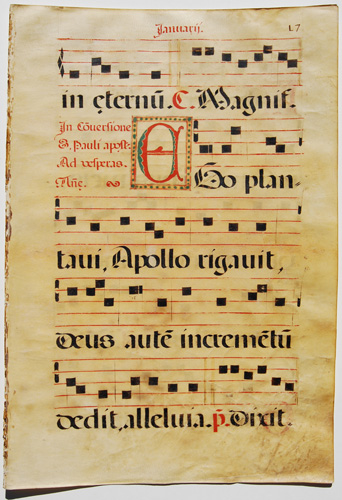 Januarij. L7
in ęternũ. C. Magnif.
In Cõversione
S. Pauli apost:
Ad vesperas.
Añe.
EGo plan-
tavi, Apollo rigavit,
Deus autẽ incremẽtũ
dedit, alleluia. p̃. Dixit.